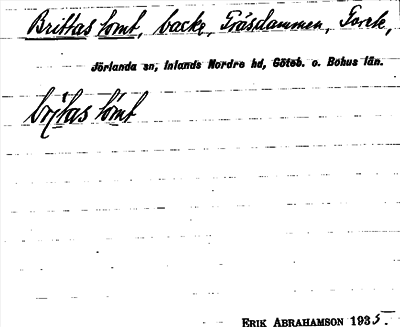 Brittas tomt, backe, Träsdammen, Torek,
Jörlanda sn, Inlands Nordre hd, Göteb. o. Bohus län.
britas tomt
ERIK ABRAHAMSON 1935.